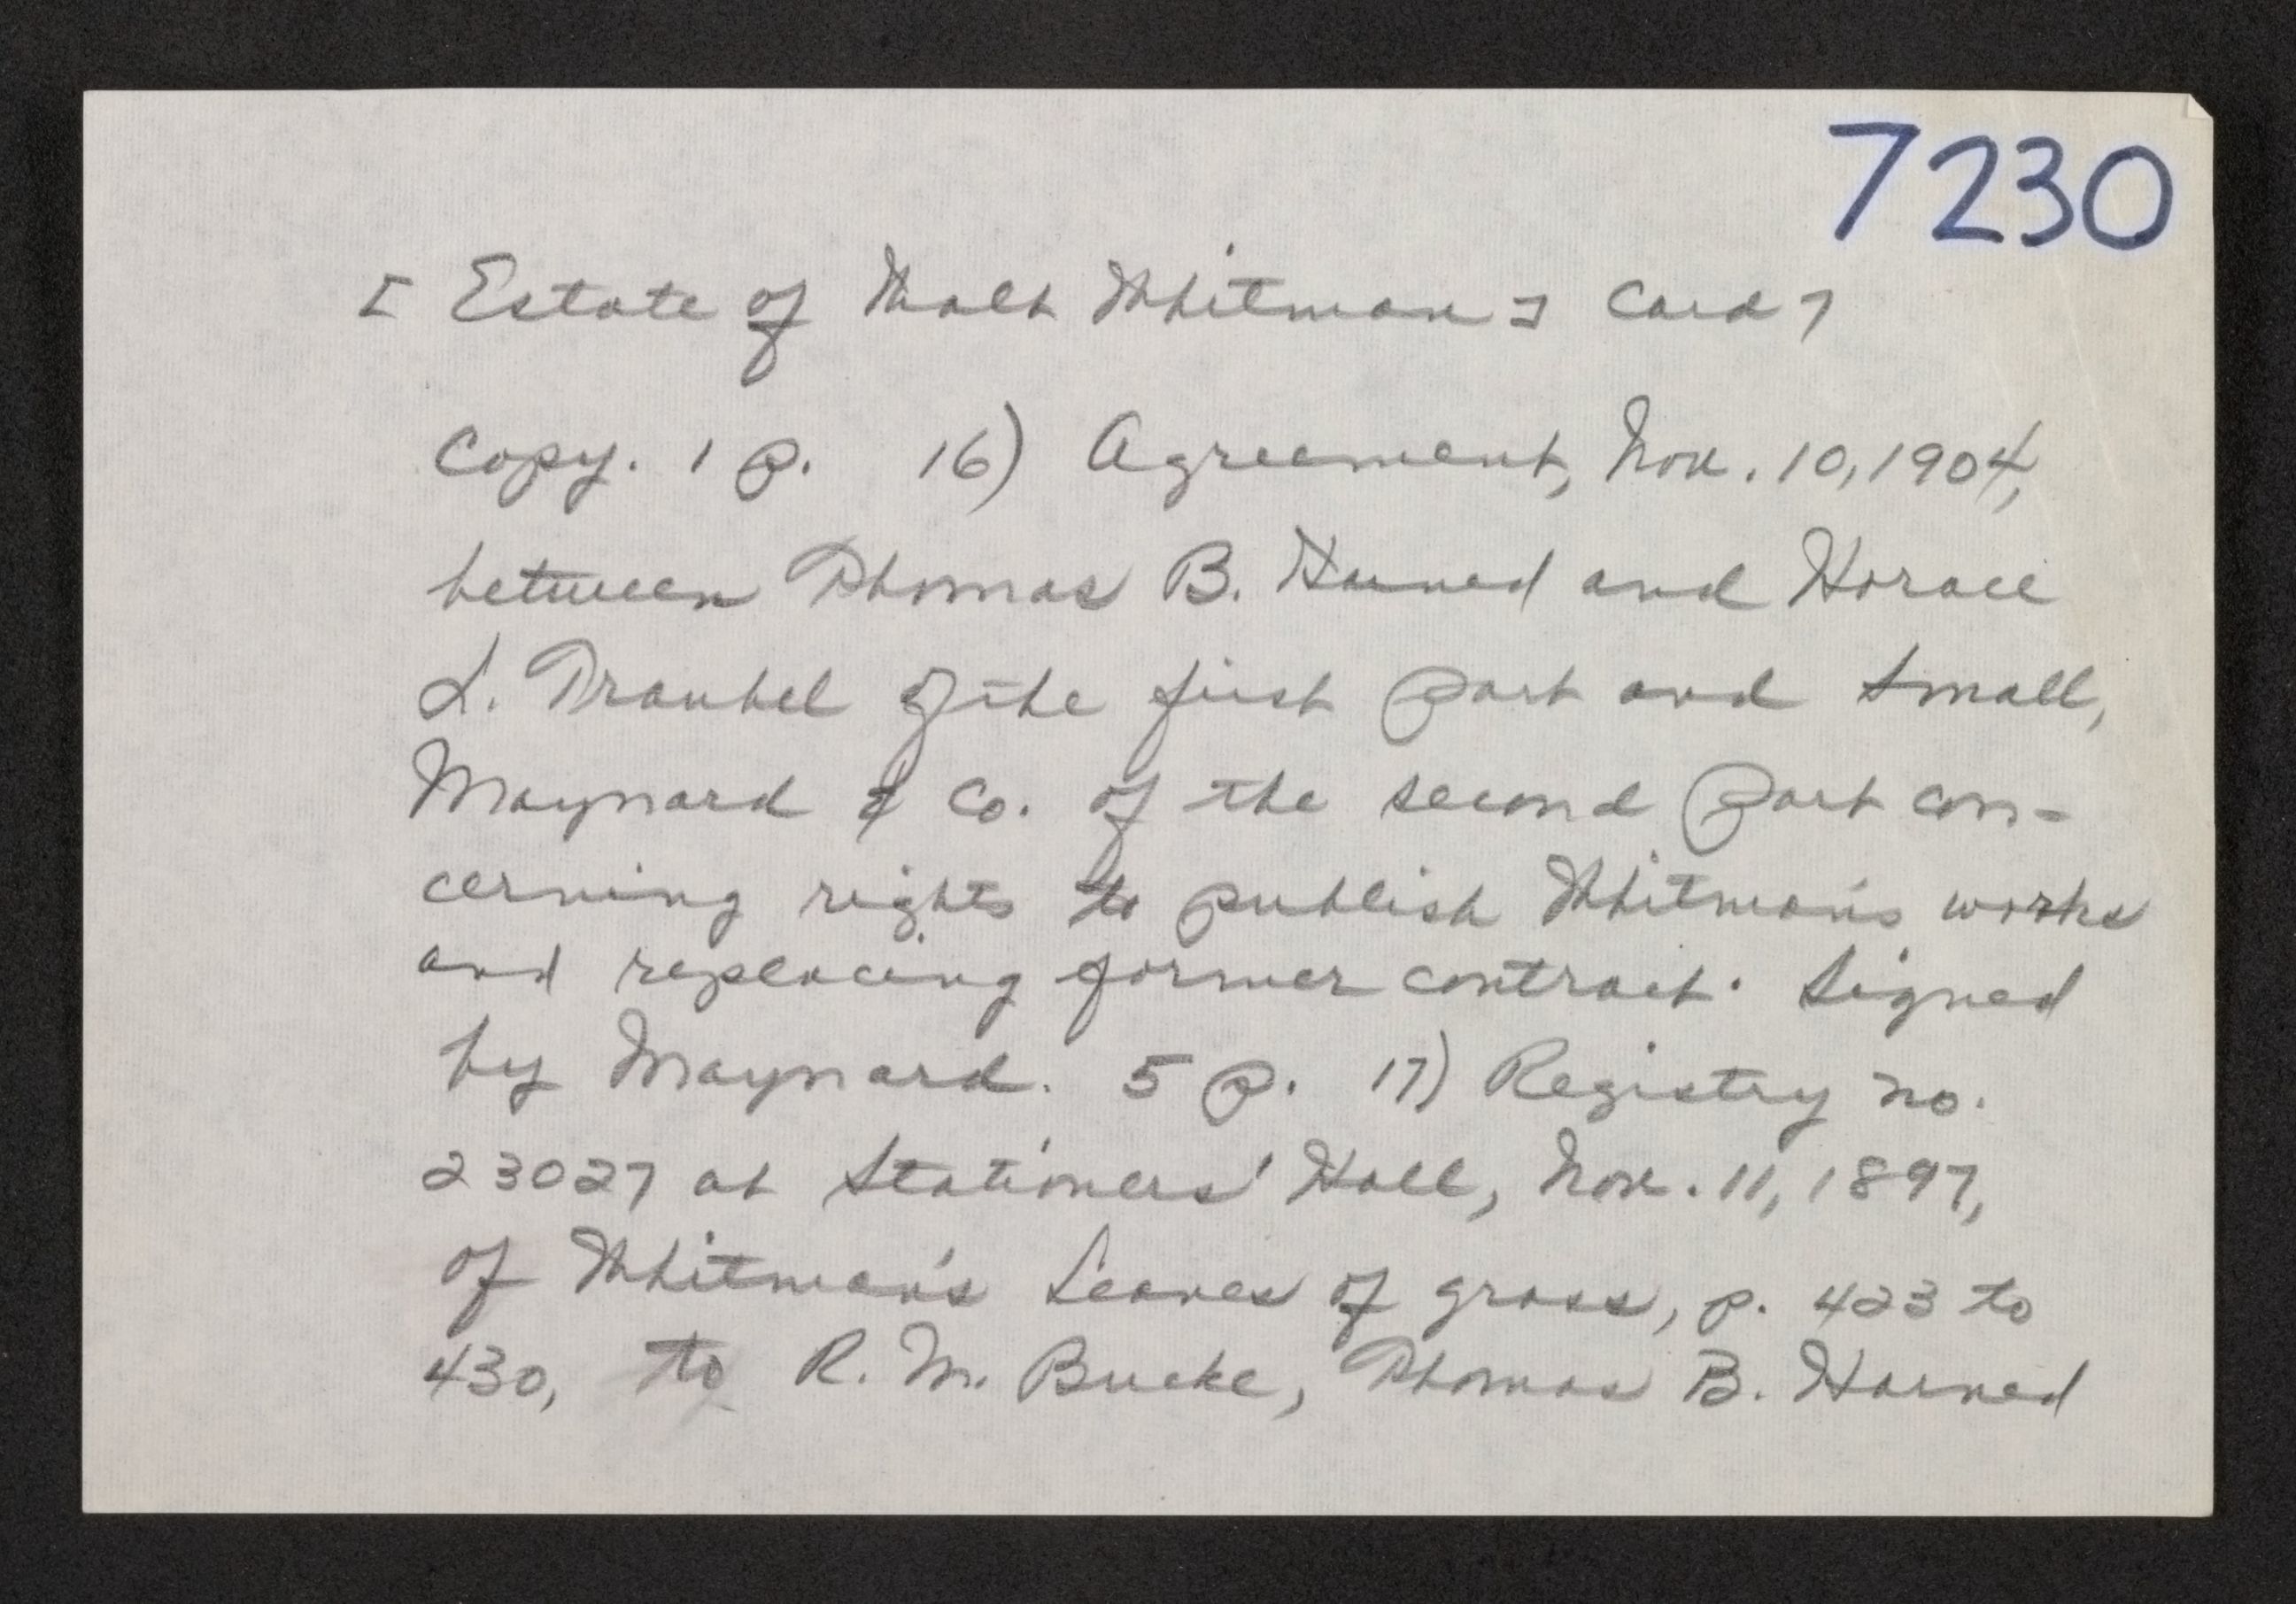 7230
[Estate of Walt Whitman] Card 7
Copy. 1 p. 16) Agreement, Nov. 10, 1904,
between Thomas B. Harned and Horace
L. Traubel of the first part and Small,
Maynard & Co. of the second part con-
cerning rights to publish Whitman's works
and replacing former contract. Signed
by Maynard. 5 p. 17) Registry no.
23027 at Stationers' Hall, Nov. 11, 1897,
of Whitman's Leaves of grass, p. 423 to
430, to R. M. Bucke, Thomas B. Harned